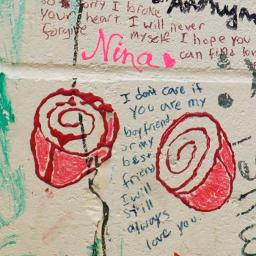 sorry I broke
your heart I will never
forgive myself I hope you
can find love
Nina
I don't care if
you are my
boyfriend
or my
best
friend
I will
still
always
love you